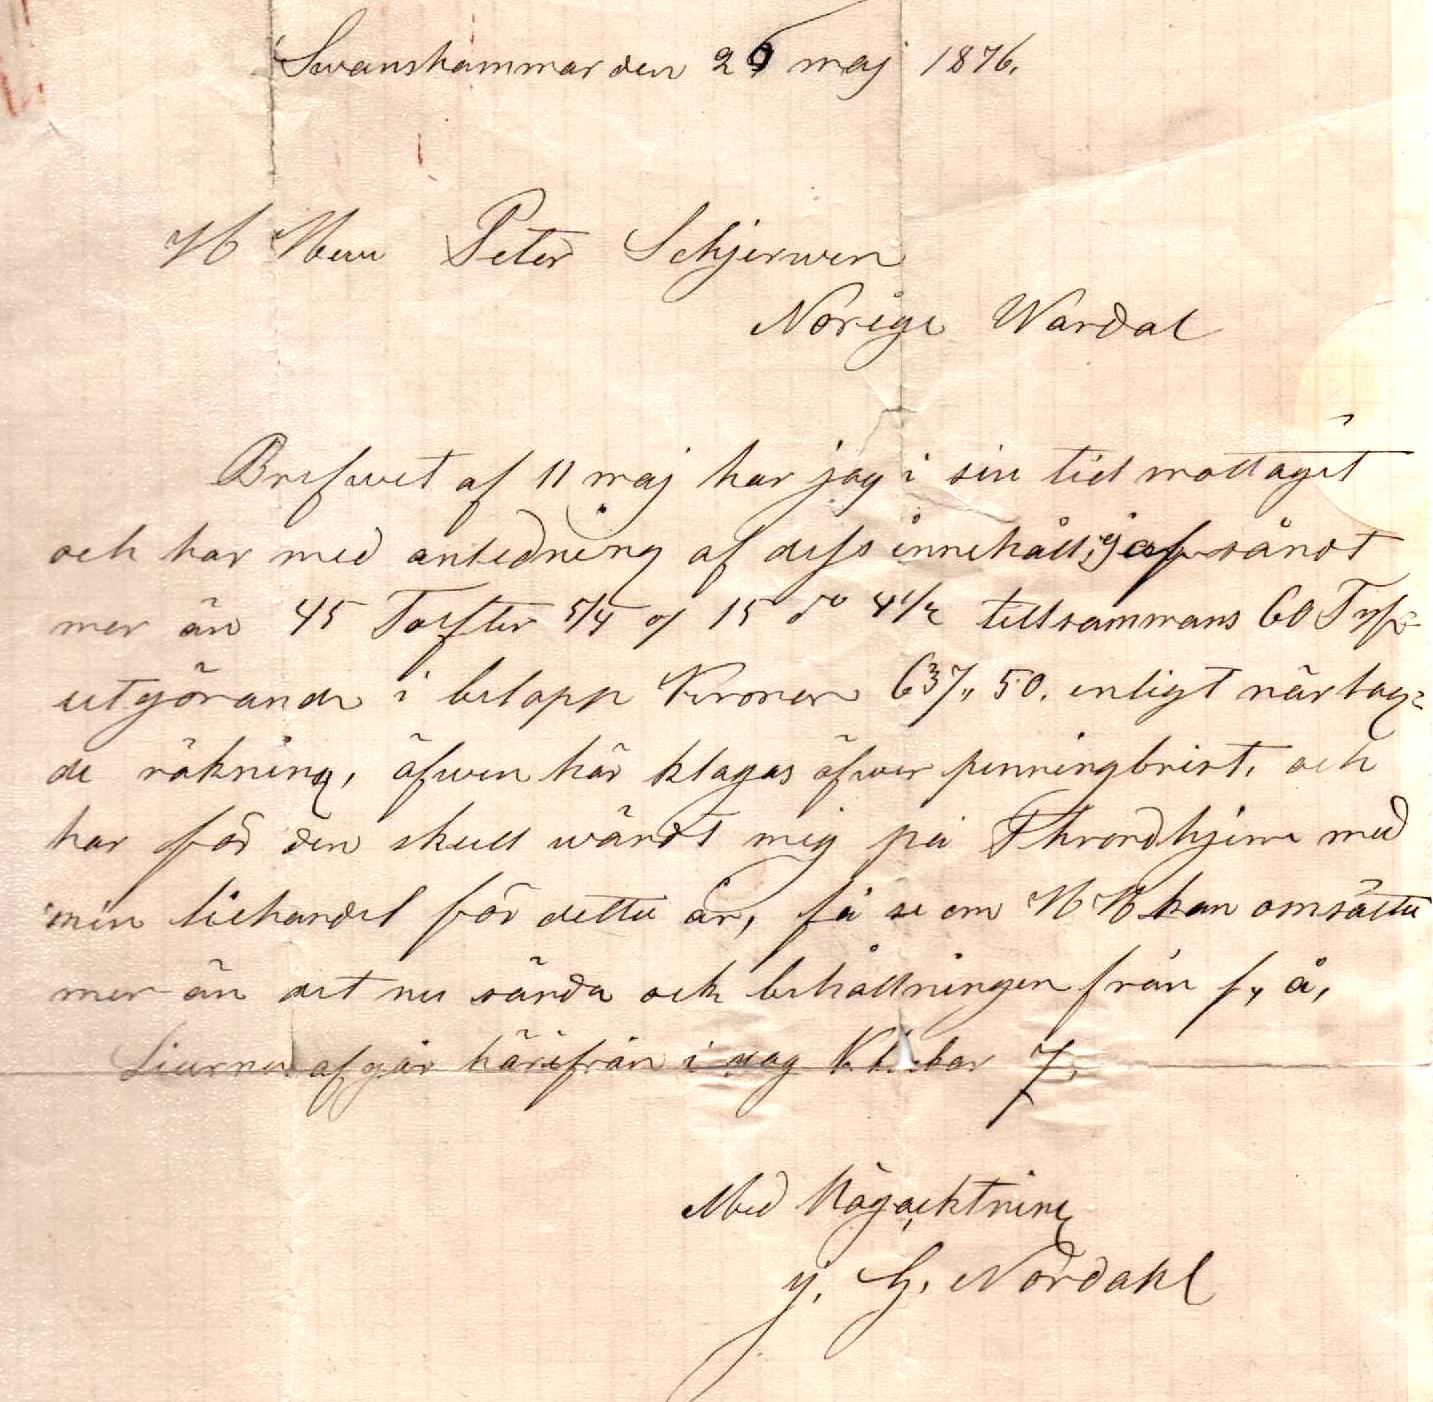 Swanshammar den 29 maj 1876.
H Herr Peter Schjerwen
Norige Wardal
Brefwet af 11 maj har jag i sin tid mottaget
och har med anledning af dess innehåll, ej afsändt
mer än 45 Tolfter 5/4 o/ 15 do 4 1/2 tillsammans 60 Tolf
utgörande i belopp Kronor 637,, 50. enligt närlag=
de räkning, äfwen här klagas öfwer penningbrist, och
har för den skull wändt mig på Throndhjem med
min liehandel för detta år, få se om H H kan omsätta
mer än det nu sända och behållningen från f, å,
Liarna afgår härifrån i dag Kl:
Med Högacktning
J. G. Nordahl